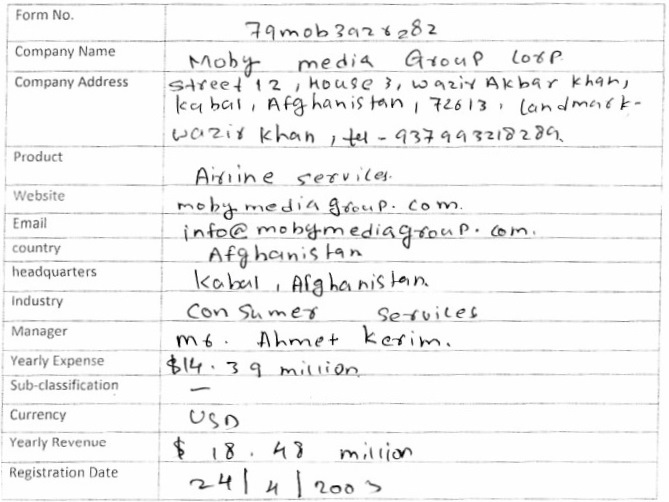 Form No. 79mob3a28282
Company Name Moby media Group Corp.
Company Address street 12, House 3, wazir Akbar khan,
kabal, Afghanistan, 72613, landmark-
wazir khan, tel - 937993218289
Product Airline services.
Website mobymediagroup.com.
Email info@mobymediagroup.com.
country Afghanistan
headquarters kabal, Afghanistan
Industry Consumer Services
Manager mr. Ahmet kerim.
Yearly Expense $14.39 million
Sub-classification —
Currency USD
Yearly Revenue $ 18.48 million
Registration Date 24/4/2003